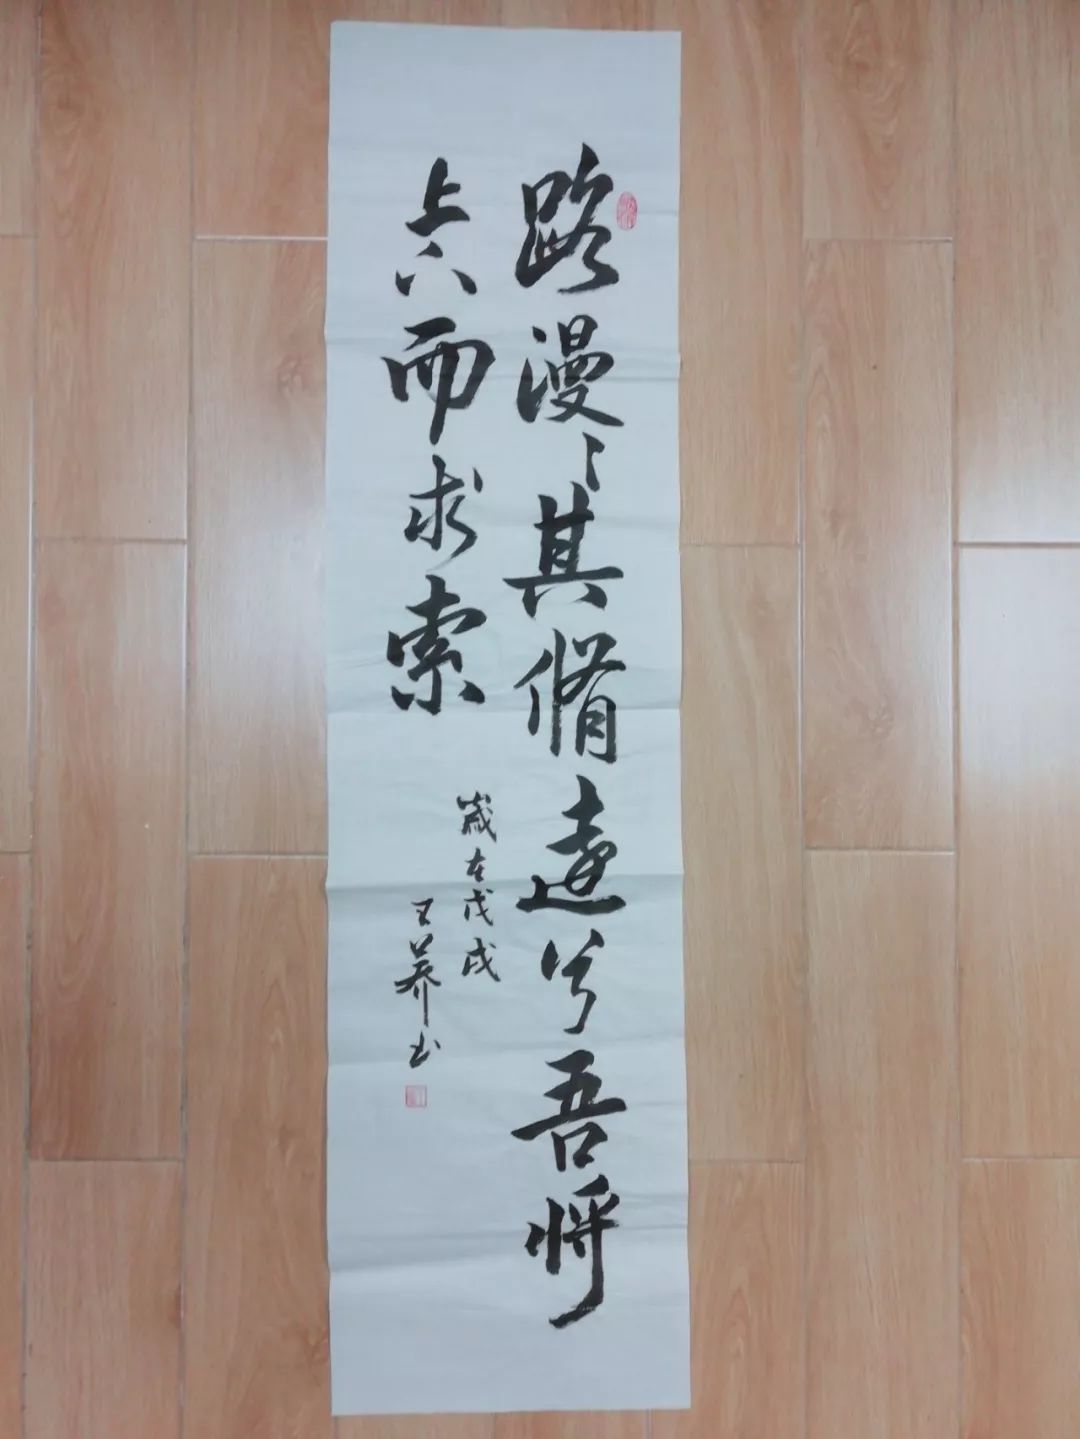 路漫〻其脩遠兮吾将
上下而求索
歲在戊戌
王书